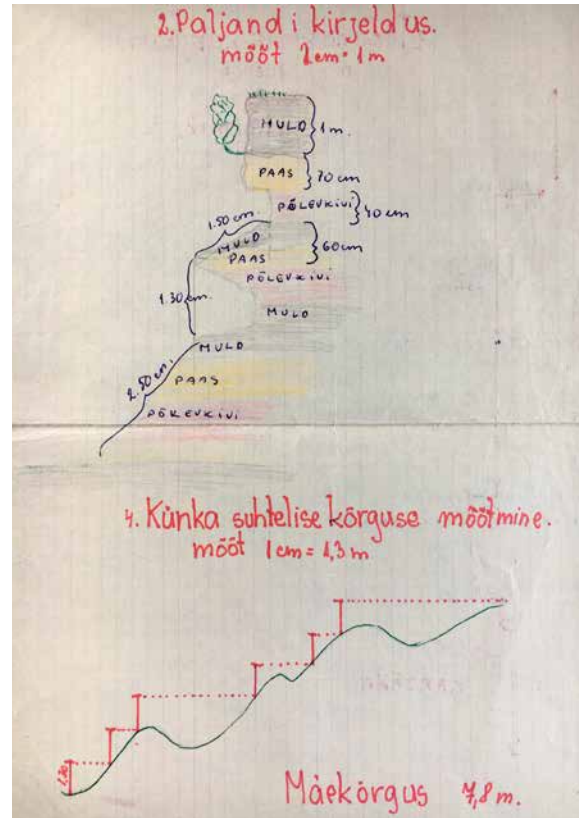 2. Paljandi kirjeldus.
mõõt 2cm = 1m
MULD 1m.
PAAS 70 cm
PÕLEVKIVI 40 cm
1.50 cm.
MULD 60 cm
PAAS
PÕLEVKIVI
1.30 cm.
MULD
MULD
2.50 cm.
PAAS
PÕLEVKIVI
4. Künka suhtelise kõrguse mõõtmine.
mõõt 1cm = 1,3 m
1,30
Mäekõrgus 7,8 m.